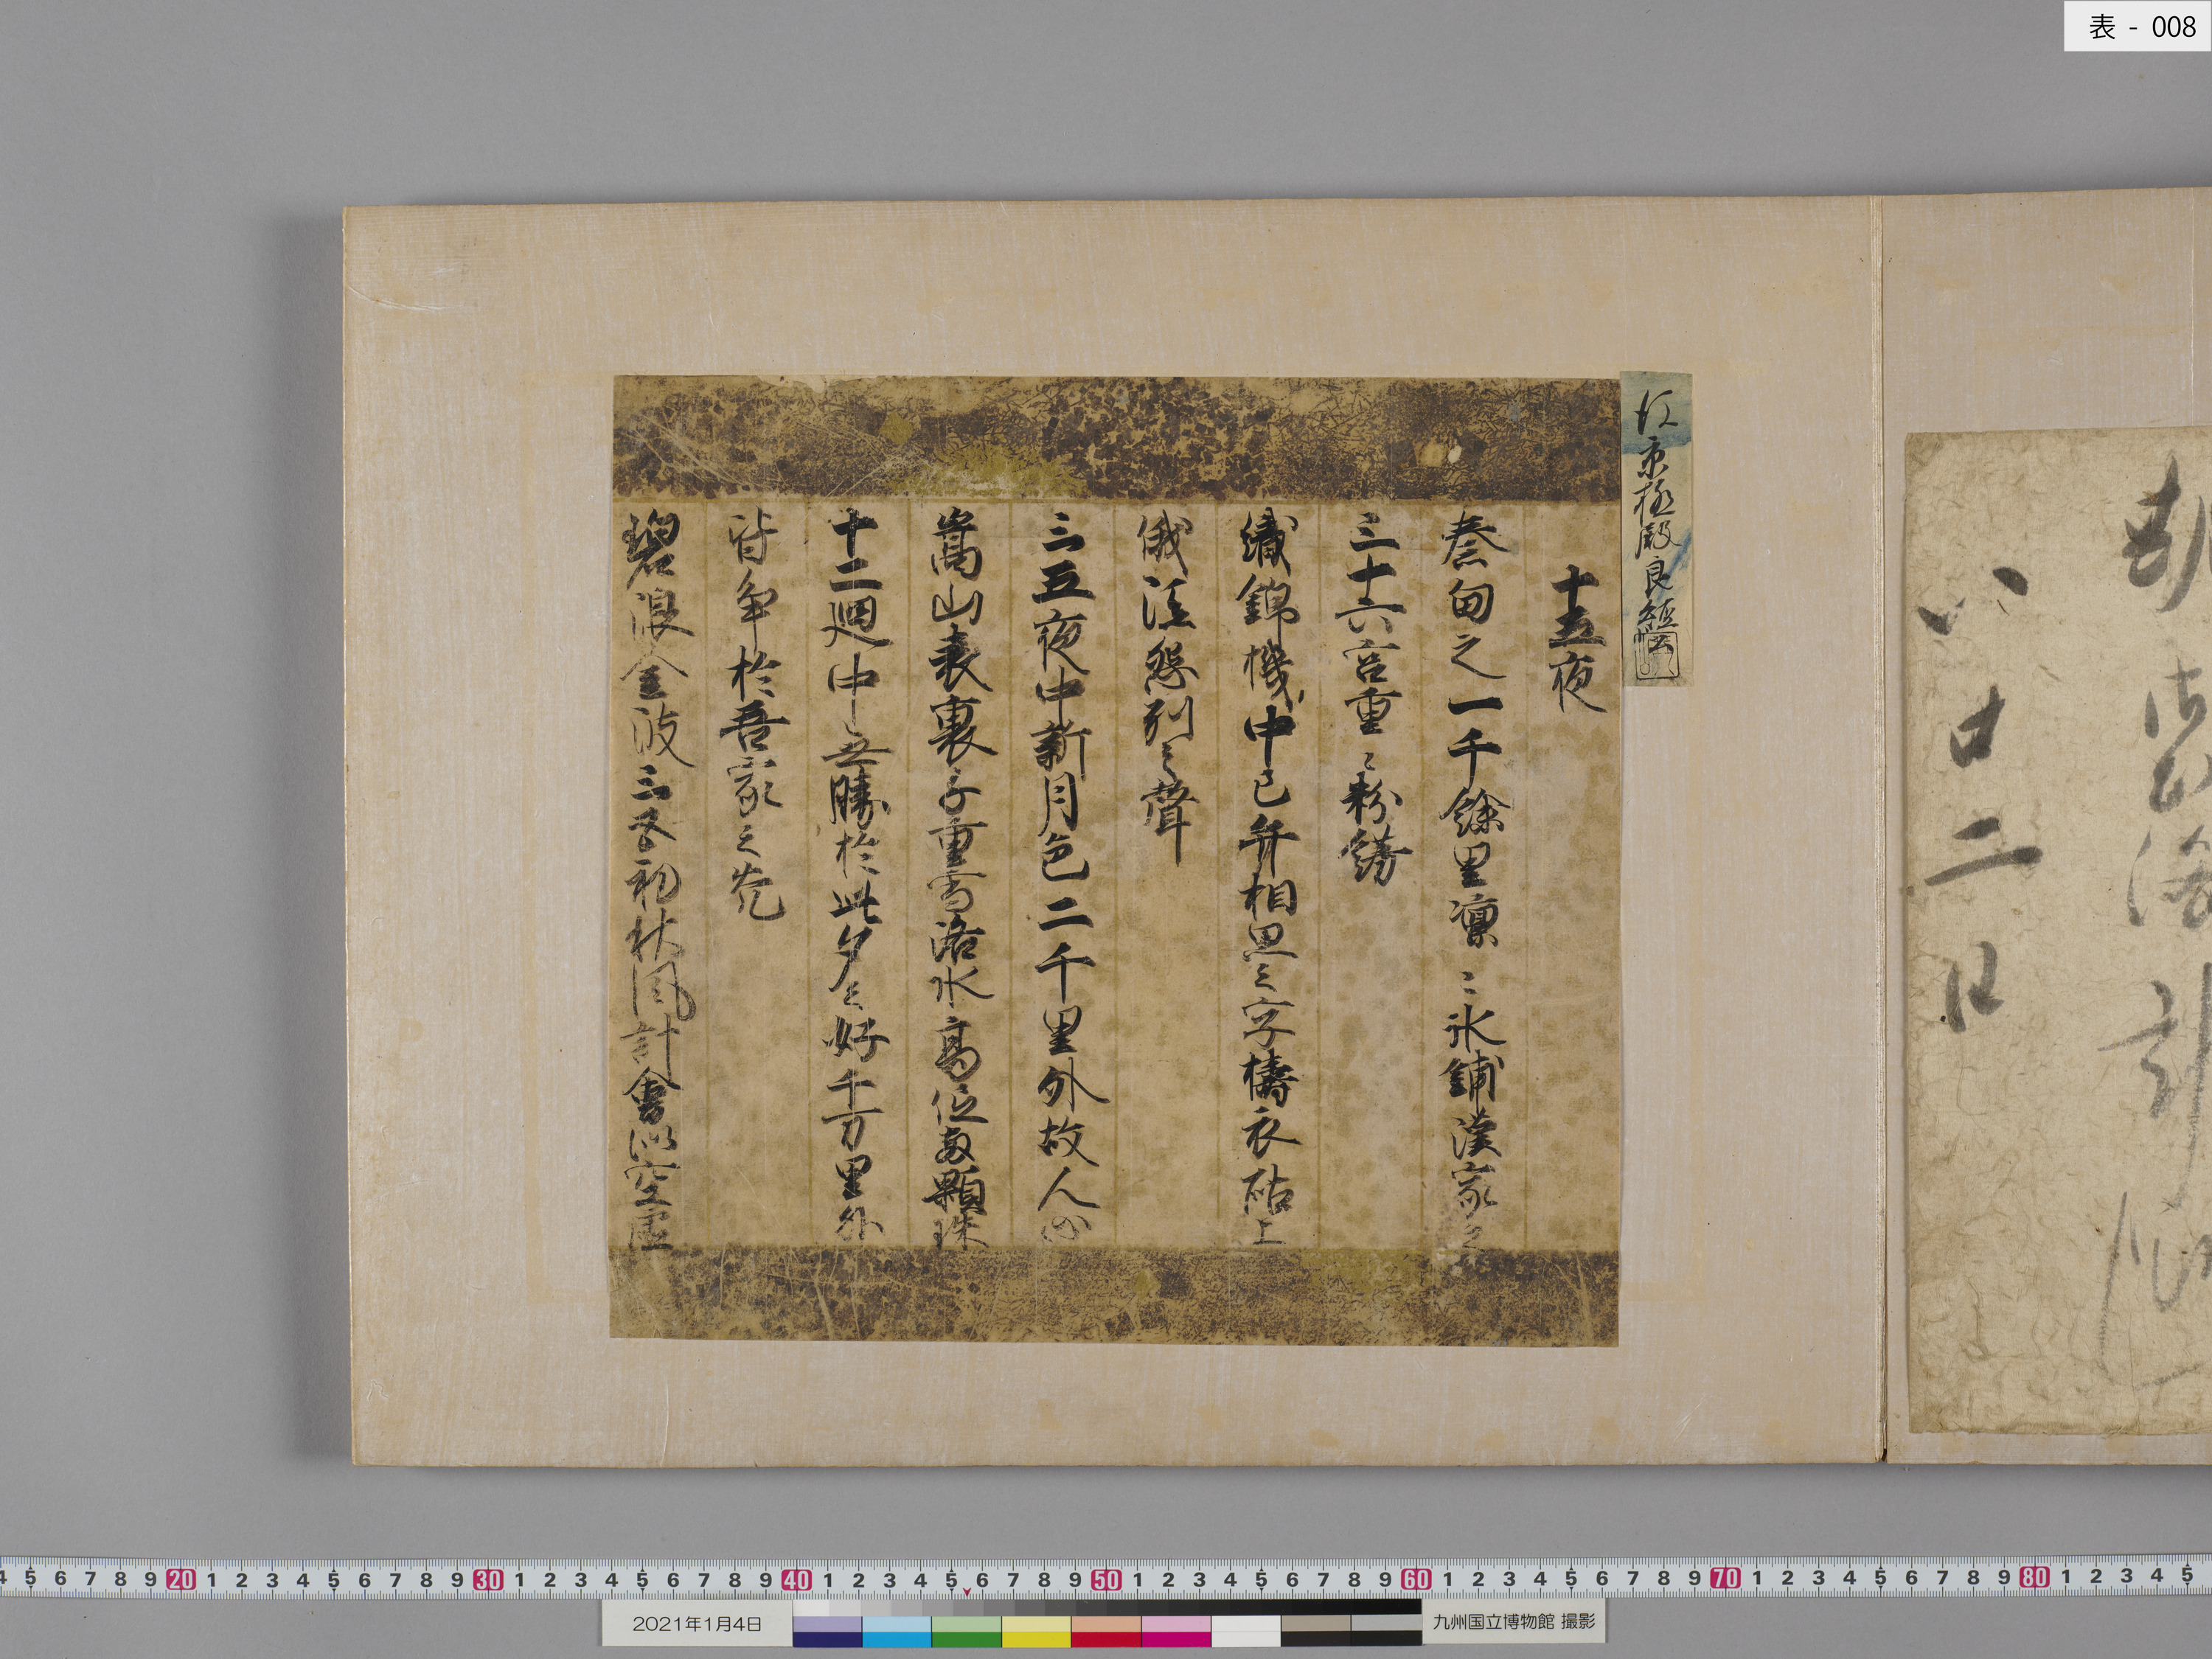 表 - 008
八廿二日
後京極殿良經
十五夜
秦甸之一千餘里凛〻氷鋪漢家之
三十六宮重〻粉餝
織錦機中已弁相思之字擣衣砧上
俄添怨別之聲
三五夜中新月色二千里外故人心
嵩山表裏千重雪洛水高低兩顆珠
十二廻中無勝於此夕之好千万里外
皆争於吾家之光
碧浪金波三五初秋風計會似空虚
2021年1月4日
九州国立博物館 撮影